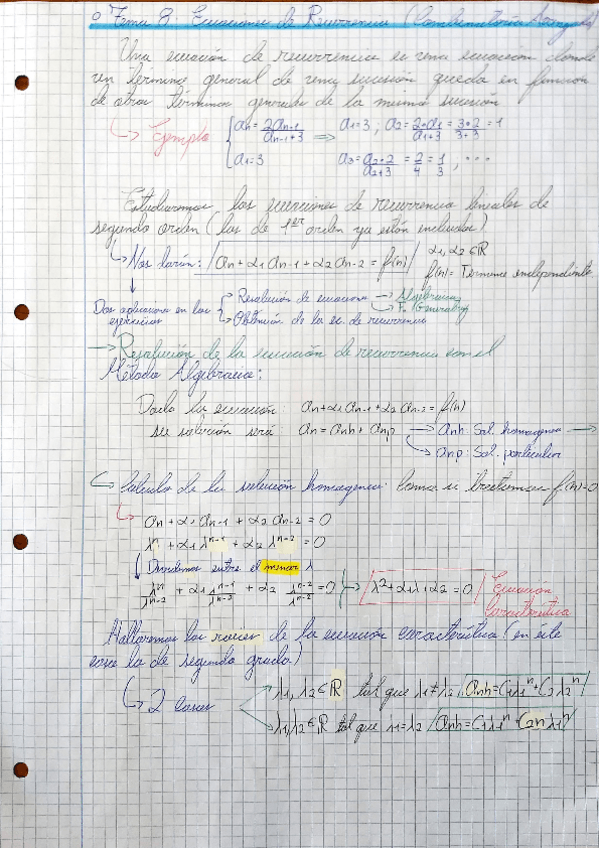 o Tema 8: Ecuaciones de Recurrencia (Combinatoria Avanzada)
Una ecuación de recurrencia es una ecuación donde
un término general de una sucesión queda en función
de otros términos generales de la misma sucesión
↳ Ejemplo { an = 2an-1 / an-1+3 ⇒ a1=3, a2 = 2·a1 / a1+3 = 3·2 / 3+3 = 1
a1=3 a3 = a2·2 / a2+3 = 2/4 = 1/3, ...
Estudiaremos las ecuaciones de recurrencia lineales de
segundo orden (las de 1er orden ya están incluidas)
↳ Nos darán: an+α1 an-1+α2 an-2 = f(n) α1, α2 ∈ R
f(n) = Término independiente
Dos aplicaciones en los ejercicios
Resolución de ecuaciones → Algebraica
→ F. Generatriz
Obtención de la ec. de recurrencia
→ Resolución de la ecuación de recurrencia con el
Método Algebraico:
Dada la ecuación: an+α1 an-1+α2 an-2 = f(n)
su solución será: an = anh + anp → anh: Sol. homogenea →
→ anp: Sol. particular
↳ Calculo de la solución homogenea: Como si tratamos f(n)=0
↳ an + α1 an-1 + α2 an-2 = 0
λ^n + α1 λ^n-1 + α2 λ^n-2 = 0
↓ Dividimos entre el menor λ
λ^n/λ^n-2 + α1 λ^n-1/λ^n-2 + α2 λ^n-2/λ^n-2 = 0 → λ²+α1λ+α2=0 Ecuación característica
Hallaremos las raíces de la ecuación característica (en este
caso la de segundo grado)
↳ 2 casos
λ1, λ2 ∈ R tal que λ1≠λ2, anh=C1λ1^n+C2λ2^n
λ1, λ2 ∈ R tal que λ1=λ2 anh=C1λ1^n+C2nλ1^n